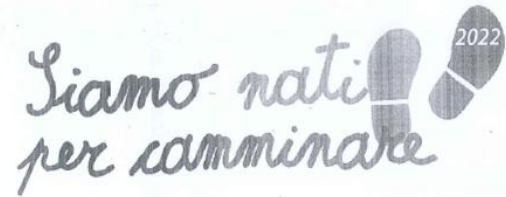 Siamo nati
per camminare
2022